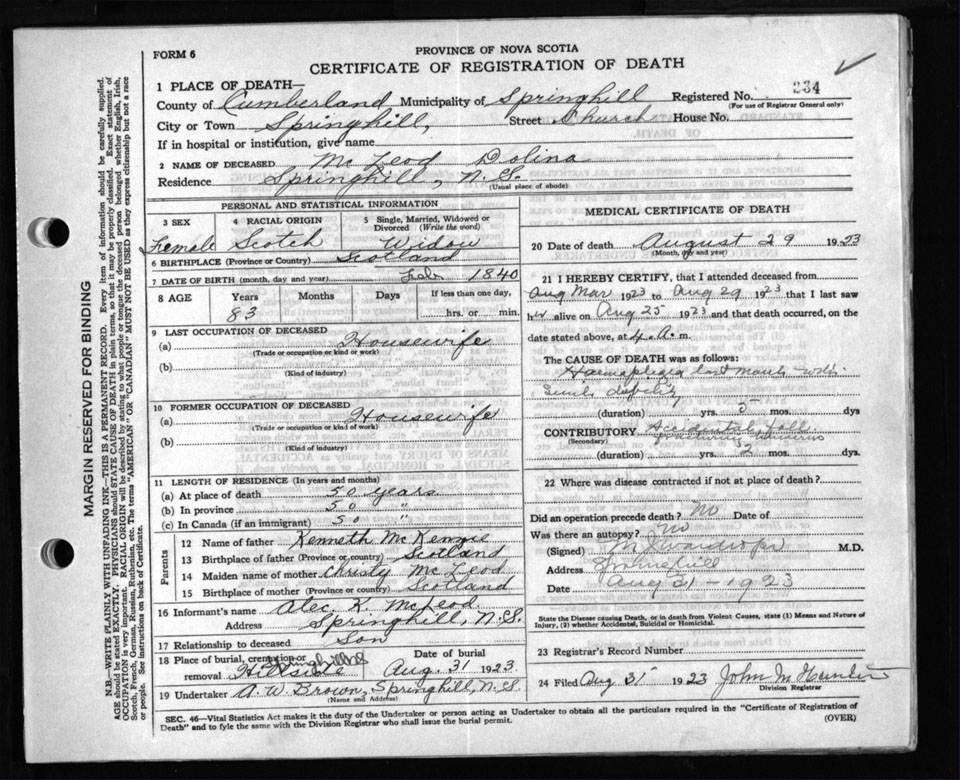 FORM 6
PROVINCE OF NOVA SCOTIA
CERTIFICATE OF REGISTRATION OF DEATH
234
1 PLACE OF DEATH—
County of Cumberland Municipality of Springhill Registered No.
(For use of Registrar General only)
City or Town Springhill, Street Church House No.
If in hospital or institution, give name
2 NAME OF DECEASED Mc Leod Dolina
Residence Springhill, N.S.
(Usual place of abode)
PERSONAL AND STATISTICAL INFORMATION
3 SEX 4 RACIAL ORIGIN 5 Single, Married, Widowed or Divorced (Write the word)
Female Scotch Widow
6 BIRTHPLACE (Province or Country) Scotland
7 DATE OF BIRTH (month, day and year) Feb 1840
8 AGE Years Months Days If less than one day,
83 hrs. or min.
9 LAST OCCUPATION OF DECEASED
(a) Housewife
(Trade or occupation or kind or work)
(b)
(Kind of industry)
10 FORMER OCCUPATION OF DECEASED
(a) Housewife
(Trade or occupation or kind of work)
(b)
(Kind of industry)
11 LENGTH OF RESIDENCE (In years and months)
(a) At place of death 50 years
(b) In province 50 "
(c) In Canada (if an immigrant) 50 "
Parents
12 Name of father Kenneth Mc Kenzie
13 Birthplace of father (Province or country) Scotland
14 Maiden name of mother Christy Mc Leod
15 Birthplace of mother (Province or country) Scotland
16 Informant's name Alec. K. McLeod
Address Springhill, N.S.
17 Relationship to deceased Son
18 Place of burial, cremation or removal Hillside Springhill
Date of burial Aug. 31 1923.
19 Undertaker A. W. Brown, Springhill, N.S.
(Name and Address)
MEDICAL CERTIFICATE OF DEATH
20 Date of death August 29 1923
(Month, day and year)
21 I HEREBY CERTIFY, that I attended deceased from
Aug Mar 1923 to Aug 29 1923 that I last saw
her alive on Aug 25 1923 and that death occurred, on the
date stated above, at 4. A. m.
The CAUSE OF DEATH was as follows:
last March with
Senile debility
(duration) yrs. 5 mos. dys
CONTRIBUTORY Accidental fall
(Secondary)
(duration) yrs. 2 mos. dys.
22 Where was disease contracted if not at place of death?
Did an operation precede death? No Date of
Was there an autopsy? No
(Signed) M.D.
Address Springhill
Date Aug 31 - 1923
State the Disease causing Death, or in death from Violent Causes, state (1) Means and Nature of Injury, (2) whether Accidental, Suicidal or Homicidal.
23 Registrar's Record Number
24 Filed Aug 31 1923 John M
Division Registrar
SEC. 46—Vital Statistics Act makes it the duty of the Undertaker or person acting as Undertaker to obtain all the particulars required in the "Certificate of Registration of Death" and to fyle the same with the Division Registrar who shall issue the burial permit.
(OVER)
MARGIN RESERVED FOR BINDING
N.B.—WRITE PLAINLY WITH UNFADING INK—THIS IS A PERMANENT RECORD. Every item of information should be carefully supplied.
AGE should be stated EXACTLY. PHYSICIANS should STATE CAUSE OF DEATH in plain terms, so that it may be properly classified. Exact statement of
OCCUPATION is very important. RACIAL ORIGIN will be described by stating to what people or tongue the deceased person belonged whether English, Irish,
Scotch, French, German, Russian, Ruthenian, etc. The terms "AMERICAN" OR "CANADIAN" MUST NOT BE USED as they express citizenship but not a race
or people. See instructions on back of Certificate.